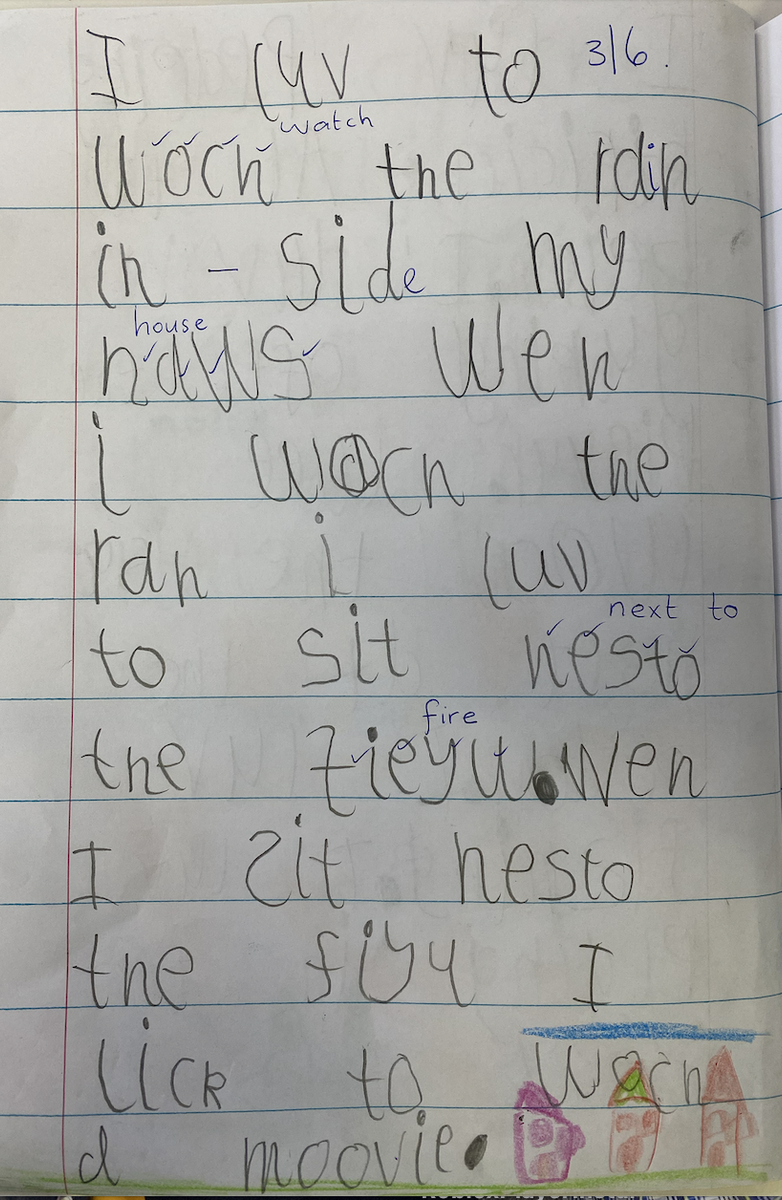 I luv to 3/6.
watch
woch the rain
in - side my
house
haws wen
i woch the
ran i luv
next to
to sit nesto
fire
the fieyu. wen
I sit nesto
the fiyu I
lick to woch
a moovie.